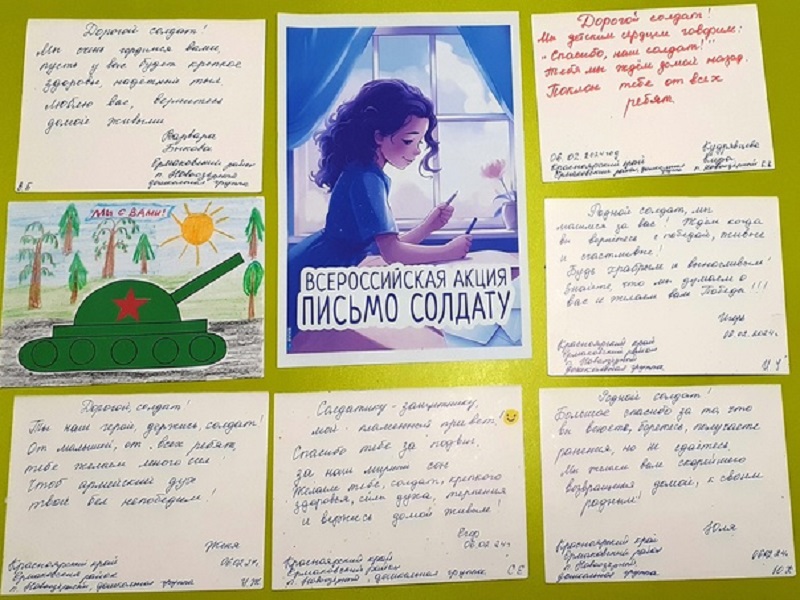 Дорогой солдат!
Мы очень гордимся вами,
пусть у вас будет крепкое
здоровье, надежный тыл.
Люблю вас, вернитесь
домой живыми
Варвара
Быкова
Ермаковский район
п. Новоозерный
дошкольная группа
В.Б
МЫ С ВАМИ!
ВСЕРОССИЙСКАЯ АКЦИЯ
ПИСЬМО СОЛДАТУ
Дорогой солдат!
Мы детским сердцем говорим:
"Спасибо, наш солдат!"
Тебя мы ждём домой назад.
Поклон тебе от всех
ребят.
Кудрявцева
06.02 2024 год
Красноярский край
Ермаковский район,
Родной солдат, мы
молимся за вас! Ждём когда
вы вернетесь с победой, живые
и счастливые!
Будь храбрым и выносливым!
Знайте, что мы думаем о
вас и желаем вам Победы!!!
Игорь
02.2024
Красноярский край
Ермаковский район
п. Новоозерный
дошкольная группа
Дорогой, солдат!
Ты наш герой, держись, солдат!
От малышей, от всех ребят,
тебе желаем много сил
Чтоб армейский дух
твой был непобедим!
Женя
06.02.24г.
Красноярский край
Ермаковский район
п. Новоозерный, дошкольная группа
Солдатику - защитнику,
мой пламенный привет!
Спасибо тебе за подвиг.
за наш мирный сон
Желаем тебе, солдат, крепкого
здоровья, силы духа, терпения
и вернись домой живым!
06.02.24г
Красноярский край
Ермаковский район
п. Новоозерный, дошкольная группа
С.Е
Родной солдат!
Большое спасибо за то, что
вы воюете, боретесь, получаете
ранения, но не сдаётесь.
Мы желаем вам скорейшего
возвращения домой, к своим
родным!
Юля
06.02.24г.
Красноярский край
Ермаковский район
п. Новоозерный
дошкольная группа